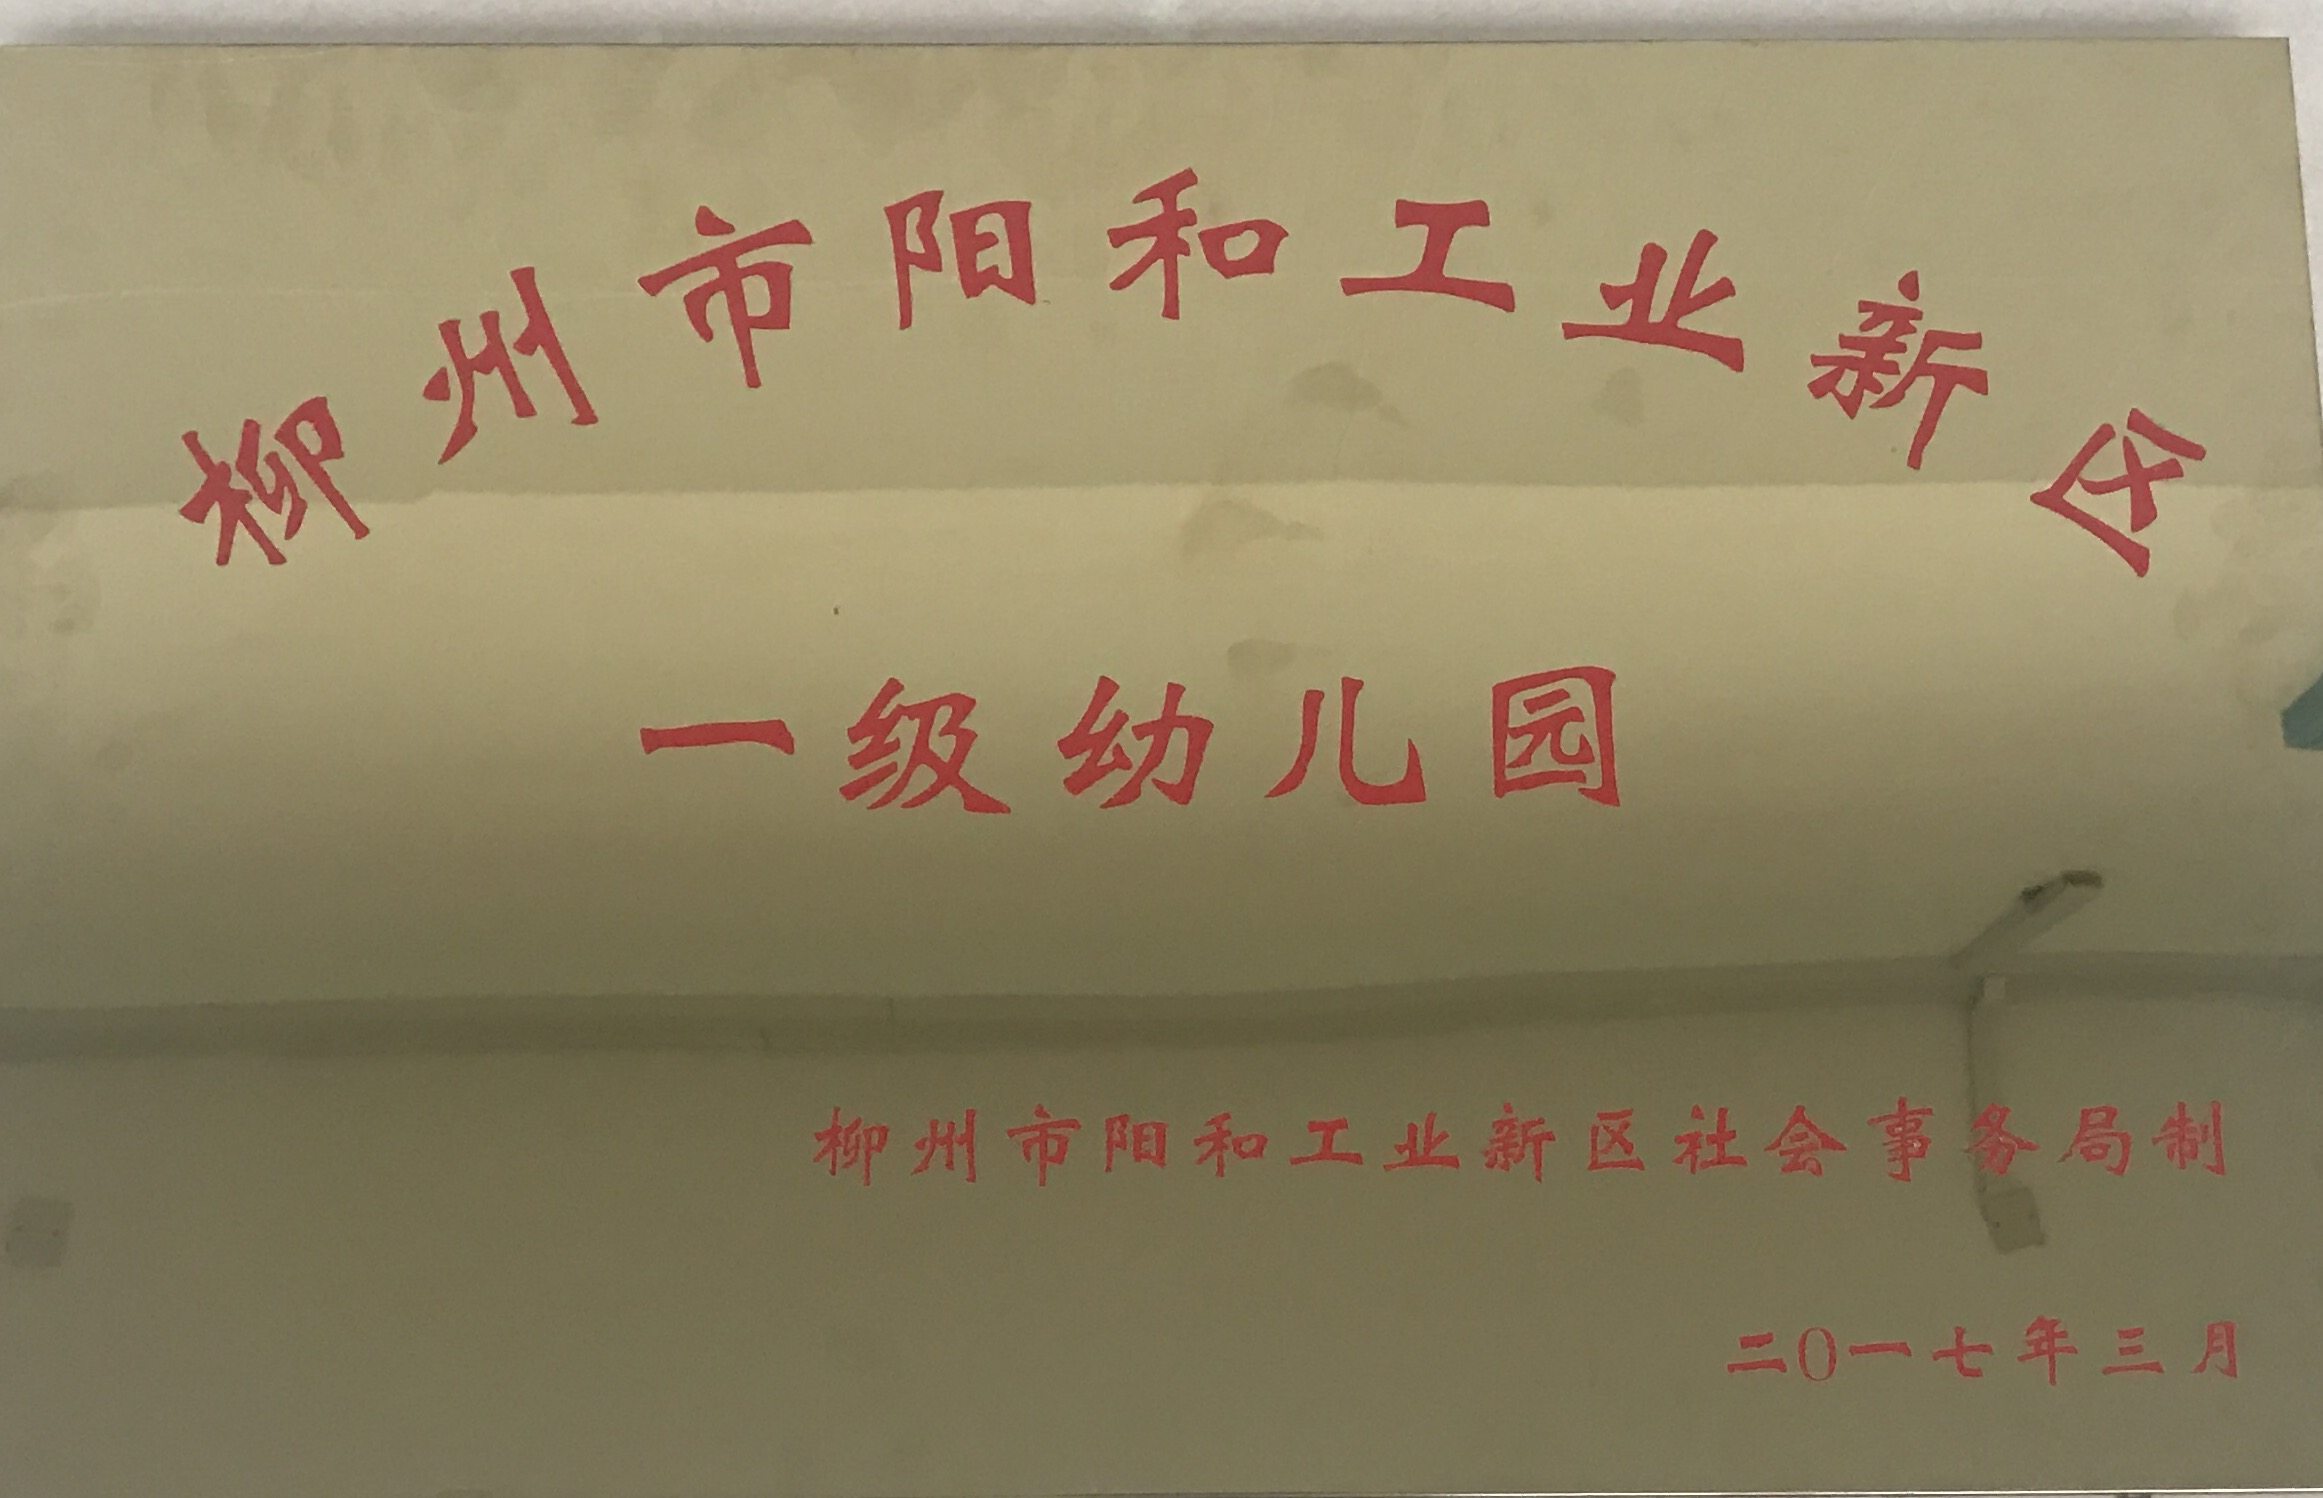 柳州市阳和工业新区
一级幼儿园
柳州市阳和工业新区社会事务局制
二0一七年三月